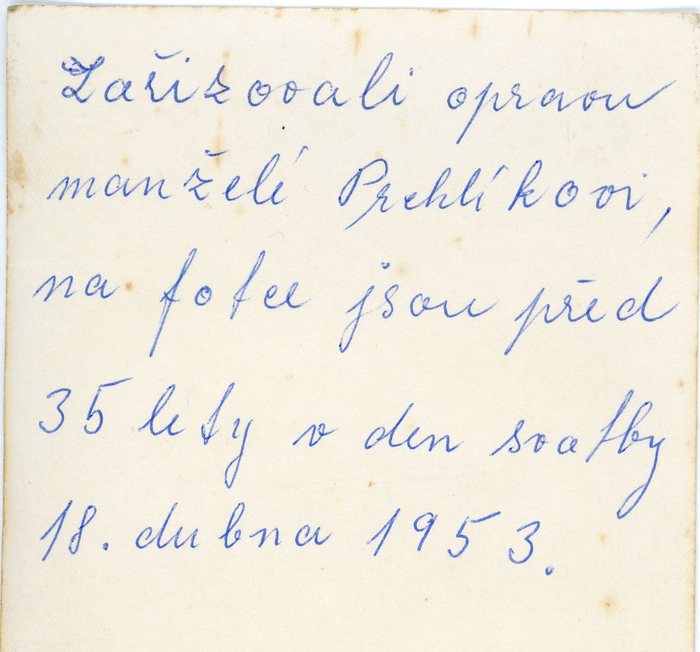 Zařizovali opravu
manželé Prchlíkovi,
na fotce jsou před
35 lety v den svatby
18. dubna 1953.